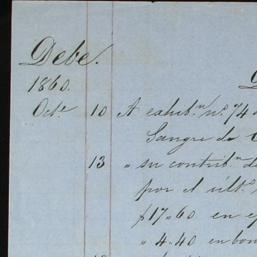 Debe.
1860.
Octe. 10 A exhibn. no. 74
Sangre de
13 " su contribn.
por el últo.
$17.60 en
" 4.40 en bon